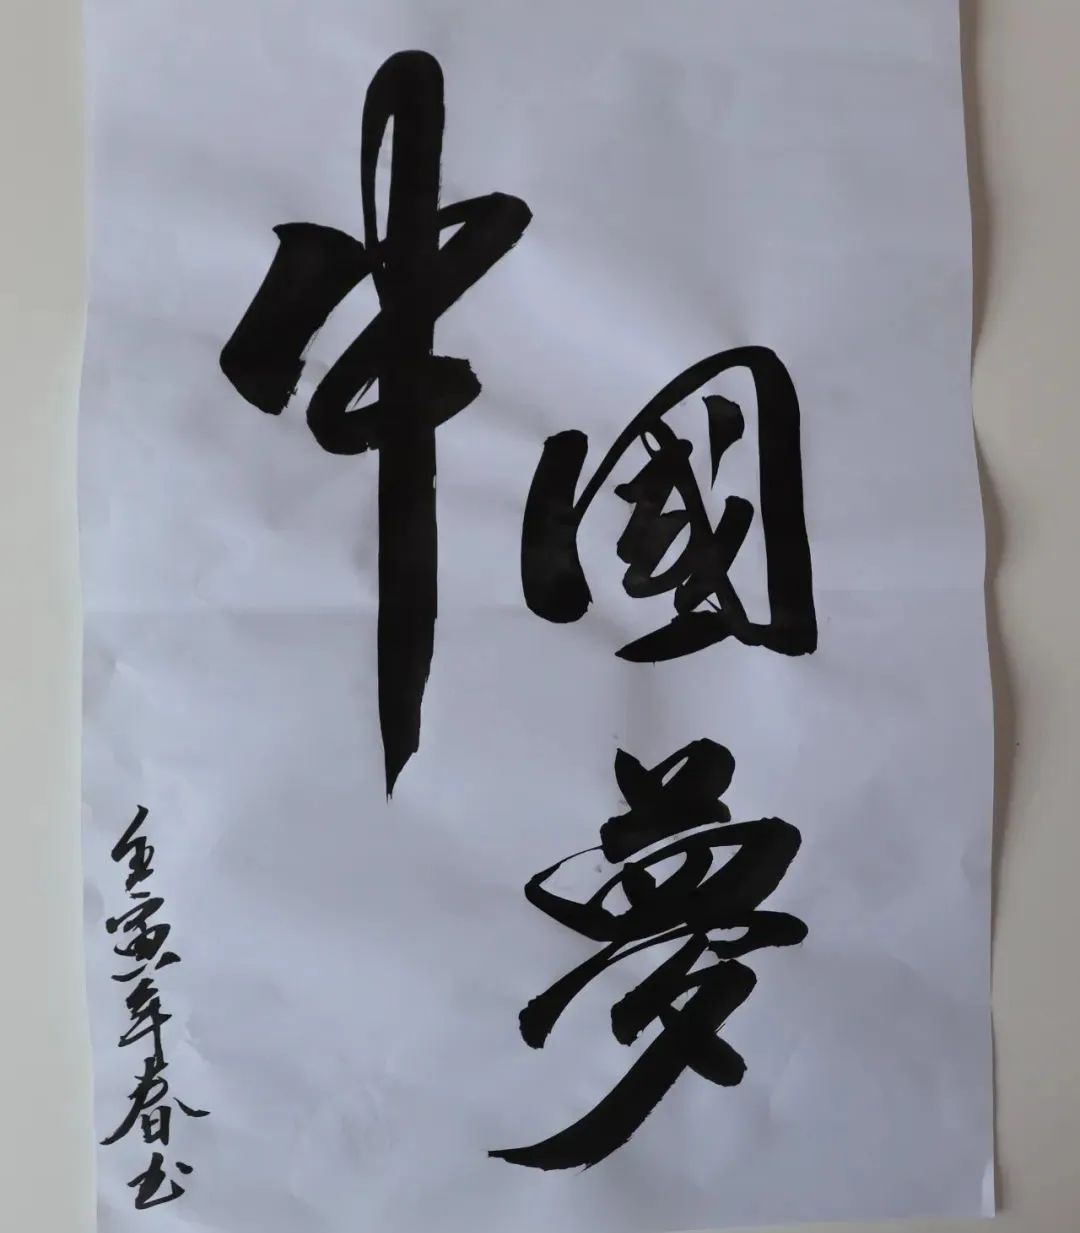 中國夢
壬寅年春书